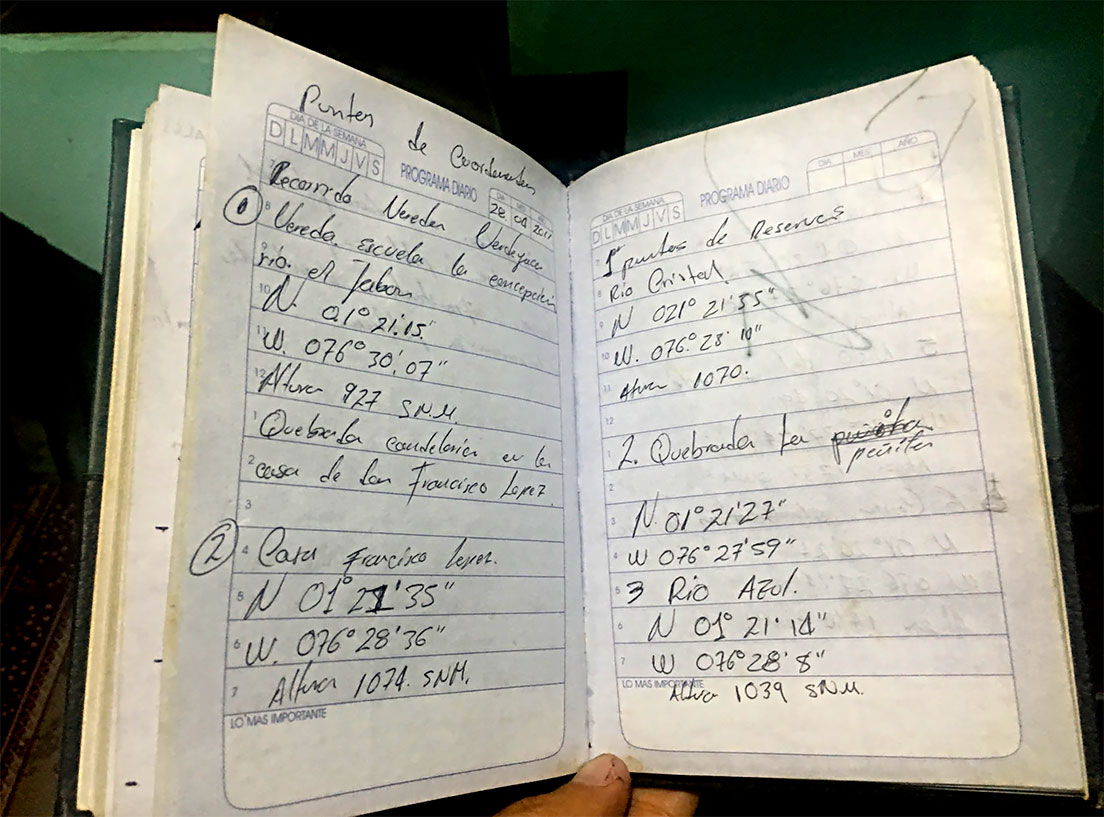 Puntos de Coordenadas
DIA DE LA SEMANA
D L M M J V S
PROGRAMA DIARIO
DIA MES AÑO
28 04 2011
7 Recorrido Veredas
1 8 Vereda. escuela la concepción
9 río. el Jabon
10 N. 01° 21.15."
11 W. 076° 30', 07"
12 Altura 927 S.N.M
1 Quebrada candelaria en la
2 casa de Don Francisco Lopez.
3
2 4 Casa Francisco Lopez.
5 N 01° 21' 35"
6 W. 076° 28' 36"
7 Altura 1074. SNM.
LO MAS IMPORTANTE
DIA DE LA SEMANA
D L M M J V S
PROGRAMA DIARIO
DIA MES AÑO
7 1 puntos de Reservas
8 Río Cristal
9 N 021° 21' 55"
10 W. 076° 28' 10"
11 Altura 1070.
12
1 2. Quebrada La
peñita
2
3 N. 01° 21' 27"
4 W 076° 27' 59"
5 3 Río AZul.
6 N 01° 21' 14"
7 W 076° 28' 8"
LO MAS IMPORTANTE
Altura 1039 SNM.